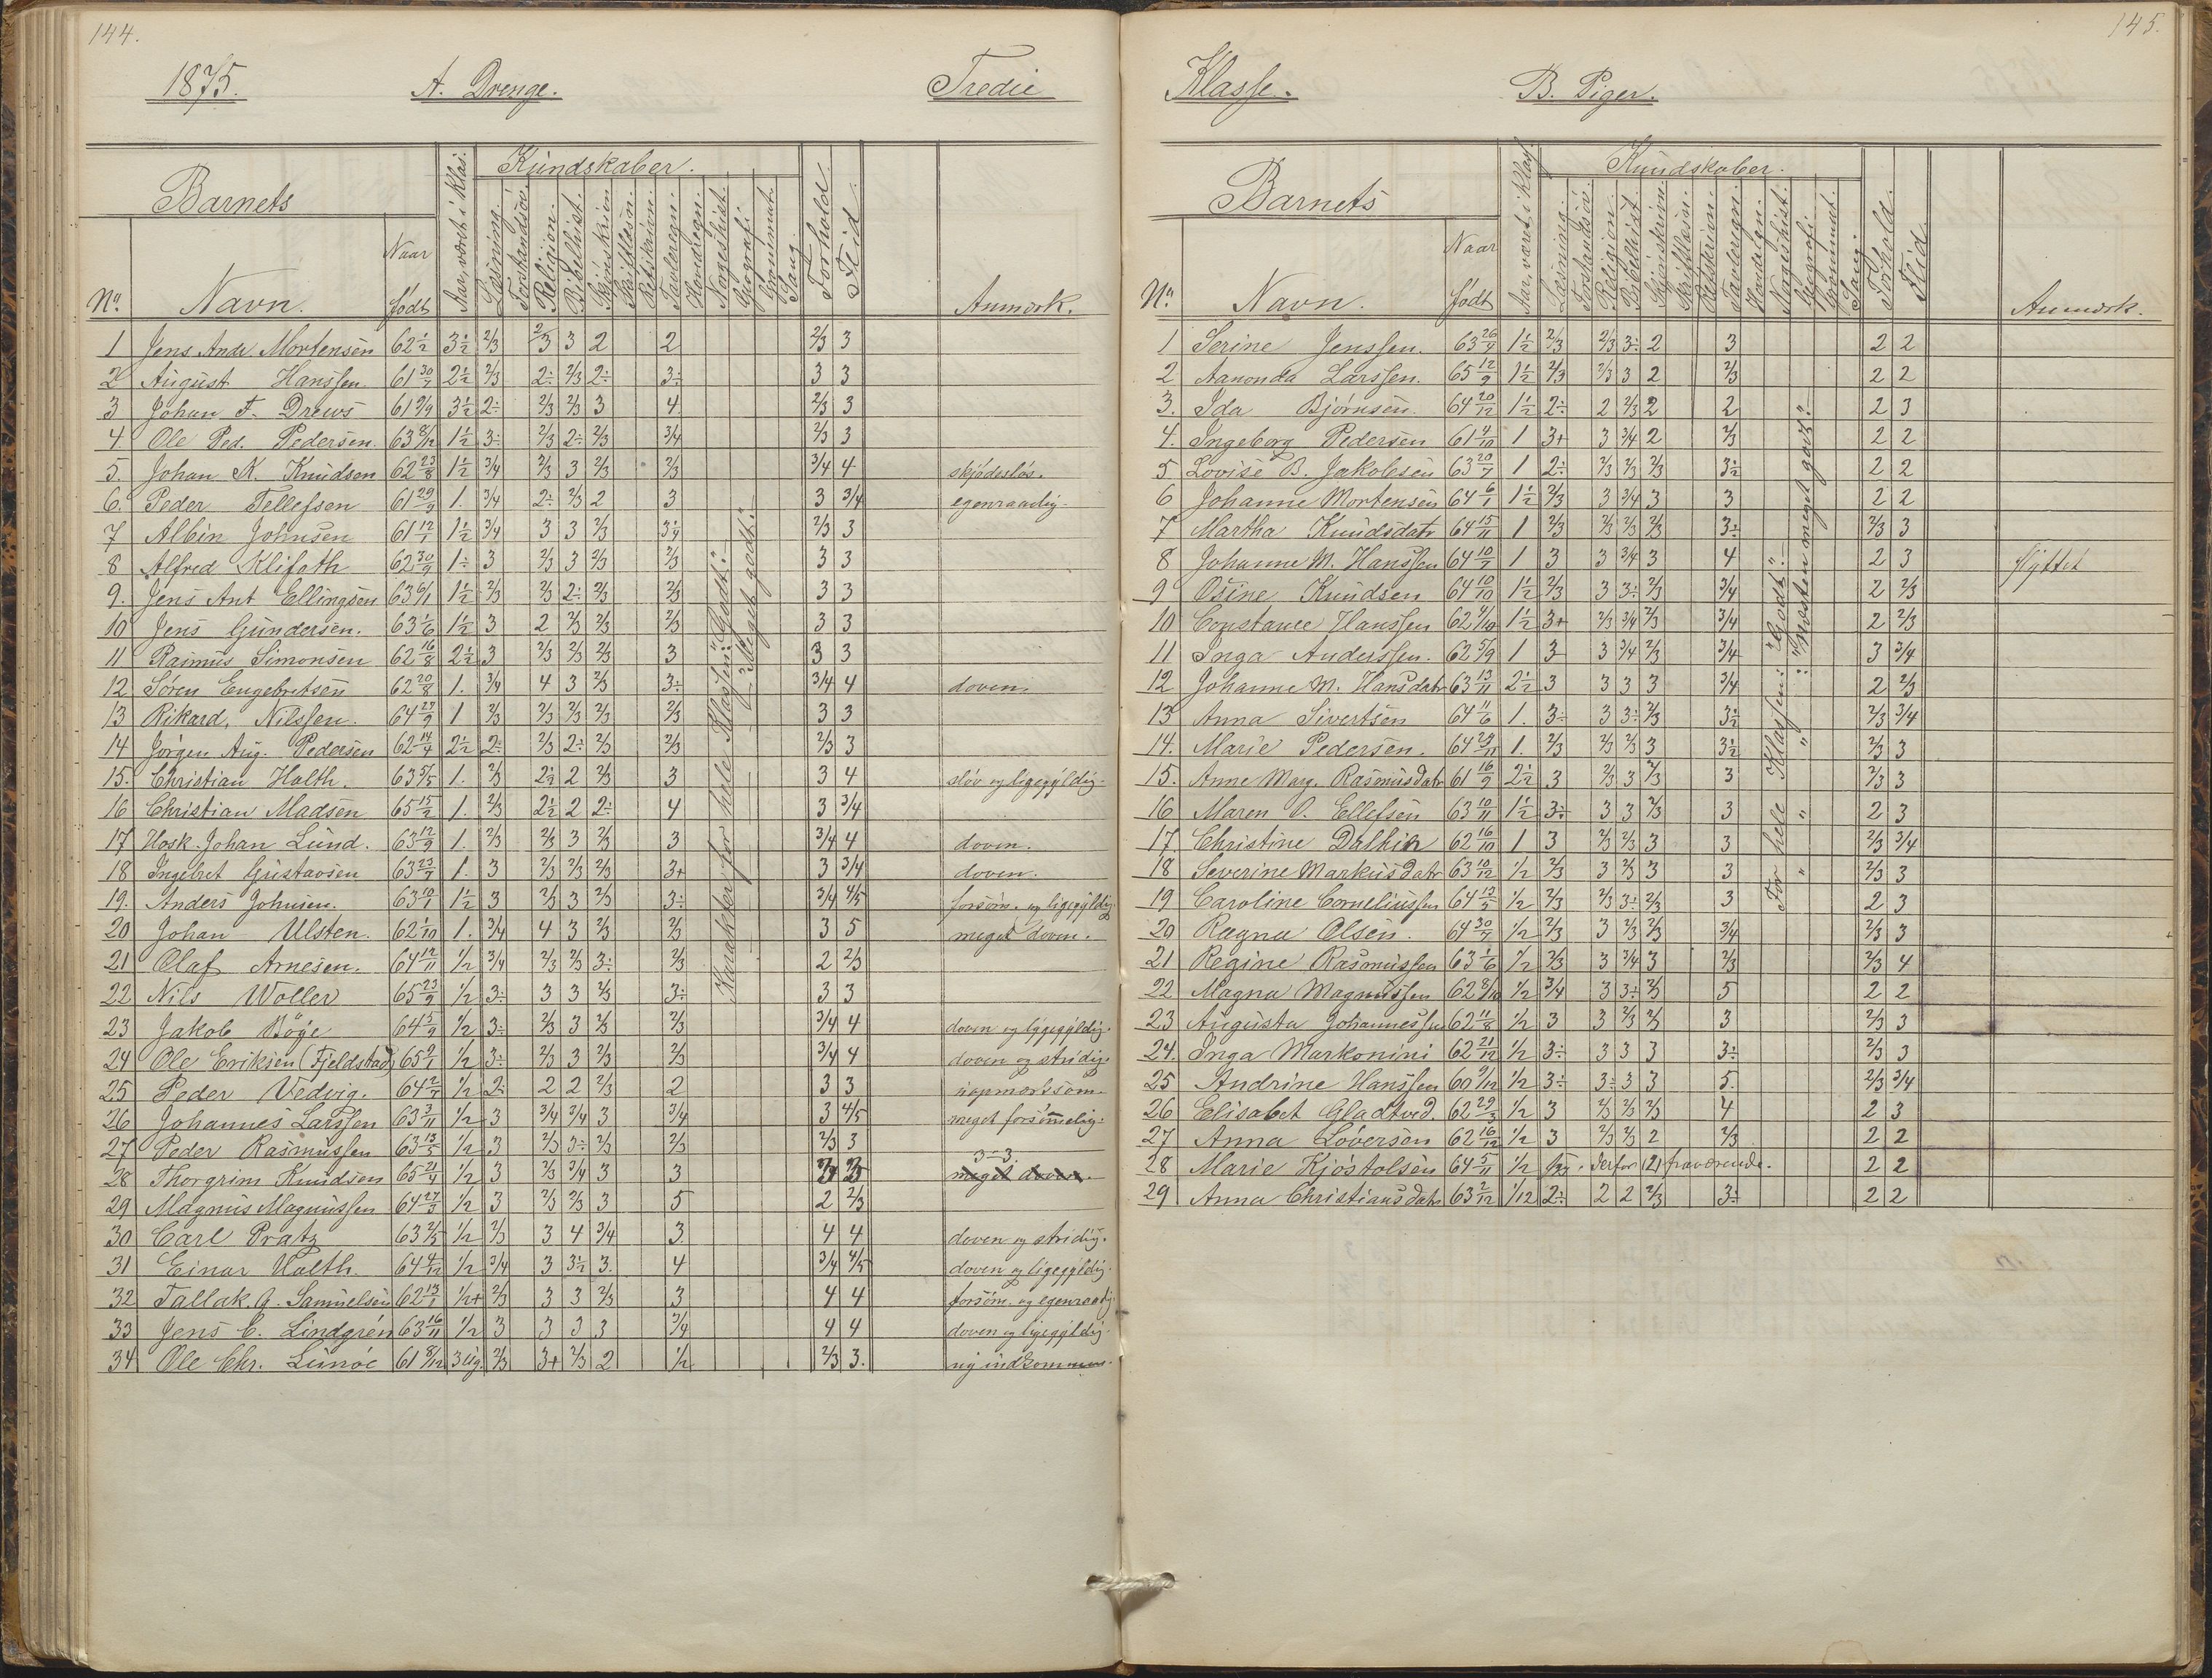 144.
1875. A. Drenge. Tredie
Barnets Kundskaber.
Aar, været i Klas. Læsning. Forstandsøv. Religion. Bibelhist. Skjønskrivn. Skriftlæsn. Retskrivn. Tavleregn. Hovedregn. Norgeshist. Geografi. Grammat. Sang. Forhold. Flid.
No. Navn. Naar født Anmærk.
1 Jens Andr. Mortensen 62 1/2 3 1/2 2/3 2/3 3 2 2 2/3 3
2 August Hanssen 61 30/7 2 1/2 2/3 2÷ 2/3 2÷ 3÷ 3 3
3 Johan F. Drews 61 9/9 3 1/2 2÷ 2/3 2/3 3 4 2/3 3
4. Ole Ped. Pedersen. 63 8/12 1 1/2 3÷ 2/3 2÷ 2/3 3/4 2/3 3
5. Johan K. Knudsen 62 23/8 1 1/2 3/4 2/3 3 2/3 2/3 3/4 4 skjødesløs.
6. Peder Tellefsen 61 29/9 1. 3/4 2÷ 2/3 2 3 3 3/4 egenraadig
7 Albin Johnsen 61 12/1 1 1/2 3/4 3 3 2/3 3÷ 2/3 3
8 Alfred Klifoth 62 30/9 1÷ 3 2/3 3 2/3 2/3 3 3
9. Jens Ant Ellingsen 63 6/1 1 1/2 2/3 2/3 2÷ 2/3 2/3 3 3
10 Jens Gundersen. 63 1/6 1 1/2 3 2 2/3 2/3 2/3 3 3
11 Rasmus Simonsen 62 16/8 2 1/2 3 2/3 2/3 2/3 3 3 3
12 Søren Engebretsen 62 20/8 1. 3/4 4 3 2/3 3÷ 3/4 4 doven.
13 Rikard, Nilssen. 64 23/9 1 2/3 2/3 2/3 2/3 2/3 3 3
14 Jørgen Aug. Pedersen 62 14/4 2 1/2 2÷ 2/3 2÷ 2/3 2/3 2/3 3
15. Christian Holth. 63 5/5 1. 2/3 2 1/2 2 2/3 3 3 4 sløv og ligegyldig
16 Christian Madsen 65 15/2 1. 2/3 2 1/2 2 2÷ 4 3 3/4
17 Hosk. Johan Lund. 63 12/9 1. 2/3 2/3 3 2/3 3 3/4 4 doven.
18 Ingebret Gustavsen 63 23/7 1. 3 2/3 2/3 2/3 3+ 3 3/4 doven.
19. Anders Johnsen. 63 10/1 1 1/2 3 2/3 3 2/3 3÷ 3/4 4/5 forsøm. og ligegyldig
20 Johan Ulsten. 62 1/10 1. 3/4 4 3 2/3 2/3 3 5 meget doven.
21 Olaf Arnesen. 64 12/11 1/2 3/4 2/3 2/3 3÷ 2/3 2 2/3
22 Nils Woller 65 23/9 1/2 3÷ 3 3 2/3 3÷ 3 3
23 Jakob Bøge 64 5/9 1/2 3÷ 2/3 3 2/3 2/3 3/4 4 doven og ligegyldig.
24 Ole Eriksen (Fjeldstad) 65 9/1 1/2 3÷ 2/3 3 2/3 2/3 3/4 4 doven og stridig.
25 Peder Vedvig. 64 2/7 1/2 2÷ 2 2 2/3 2 3 3 uopmærksom.
26 Johannes Larssen 63 3/11 1/2 3 3/4 3/4 3 3/4 3 4/5 meget forsømmelig.
27 Peder Rasmussen 63 13/5 1/2 3 2/3 3÷ 2/3 2/3 2/3 3
28 Thorgrim Knudsen 65 21/4 1/2 3 2/3 3/4 3 3 3-3. meget doven.
29 Magnus Magnussen 64 27/3 1/2 3 2/3 2/3 3 5 2 2/3
30 Carl Pratz 63 2/5 1/2 2/3 3 4 3/4 3. 4 4 doven og stridig.
31 Einar Holth. 64 4/12 1/2 3/4 3 3 1/2 3. 4 3/4 4/5 doven og ligegyldig.
32 Tallak. G. Samuelsen 62 13/1 1/2+ 2/3 3 3 2/3 3 4 4 forsøm. og egenraadig.
33 Jens C. Lindgren 63 16/11 1/2 3 3 3 3 3/4 4 4 doven og ligegyldig.
34 Ole Chr. Lunøe 61 8/12 3 Ug. 2/3 3+ 2/3 2 1/2 2/3 3. ny indkommen.
Karakter for hele Klassen: "Godt".
"Meget godt".
145.
Klasse. B. Piger.
Barnets Kundskaber.
Aar, været i Klas. Læsning. Forstandsøv. Religion. Bibelhist. Skjønskrivn. Skriftlæsn. Retskrivn. Tavleregn. Hovedregn. Norgeshist. Geografi. Grammat. Sang. Forhold. Flid.
No. Navn. Naar født Anmærk.
1 Serine Jenssen. 63 26/4 1 1/2 2/3 2/3 3÷ 2 3 2 2
2 Aanonda Larssen. 65 12/9 1 1/2 2/3 2/3 3 2 2/3 2 2
3. Ida Bjørnsen 64 20/12 1 1/2 2÷ 2 2/3 2 2 2 3
4. Ingeborg Pedersen 61 4/10 1 3+ 3 3/4 2 2/3 2 2
5 Lovise B. Jakobsen 63 20/7 1 2÷ 2/3 2/3 2/3 3 1/2 2 2
6 Johanne Mortensen 64 6/1 1 1/2 2/3 3 3/4 3 3 2 2
7 Martha Knudsdatr 64 15/11 1 2/3 2/3 2/3 2/3 3÷ 2/3 3
8 Johanne M. Hanssen 64 10/7 1 3 3 3/4 3 4 2 3 flyttet
9 Osine Knudsen 64 10/10 1 1/2 2/3 3 3÷ 2/3 3/4 2 2/3
10 Constance Hanssen 62 9/10 1 1/2 3+ 2/3 3/4 2/3 3/4 2 2/3
11 Inga Anderssen. 62 5/9 1 3 3 3/4 2/3 3/4 3 3/4
12 Johanne M. Hansdatr 63 13/11 2 1/2 3 3 3 3 3/4 2 2/3
13 Anna Sivertsen 64 11/6 1. 3÷ 3 3÷ 2/3 3 1/2 2/3 3/4
14. Marie Pedersen. 64 29/11 1. 2/3 2/3 2/3 3 3 1/2 2/3 3
15. Anne Marg. Rasmusdatr 61 16/9 2 1/2 3 2/3 3 2/3 3 2/3 3
16 Maren O. Ellefsen 63 10/11 1 1/2 3÷ 3 3 2/3 3 2 3
17. Christine Dalkin 62 16/10 1 3 2/3 2/3 3 3 2/3 3/4
18 Severine Markusdatr 63 10/12 1/2 2/3 3 2/3 3 3 2/3 3
19 Caroline Corneliussen 64 13/5 1/2 2/3 2/3 3÷ 2/3 3 2 3
20 Ragna Olsen. 64 30/7 1/2 2/3 3 2/3 2/3 3/4 2/3 3
21 Regine Rasmussen 63 1/6 1/2 2/3 3 3/4 3 2/3 2/3 4
22 Magna Magnussen 62 8/10 1/2 3/4 3 3÷ 2/3 5 2 2
23 Augusta Johannessen 62 11/8 1/2 3 3 2/3 2/3 3 2/3 3
24. Inga Markonini 62 21/12 1/2 3÷ 3 3 3 3÷ 2/3 3
25 Andrine Hanssen 60 9/12 1/2 3÷ 3÷ 3 3 5. 2/3 3/4
26 Elisabet Gladtved. 62 29/3 1/2 3 2/3 2/3 2/3 4 2 3
27 Anna Løversen 62 16/12 1/2 3 2/3 2/3 2 2/3 2 2
28 Marie Kjøstolsen 64 5/11 1/2 fraværende. 2 2
29 Anna Christiansdatr 63 2/12 1/12 2÷ 2 2 2/3 3÷ 2 2
For hele Klassen: "Godt".
" " " : "Næsten meget godt".